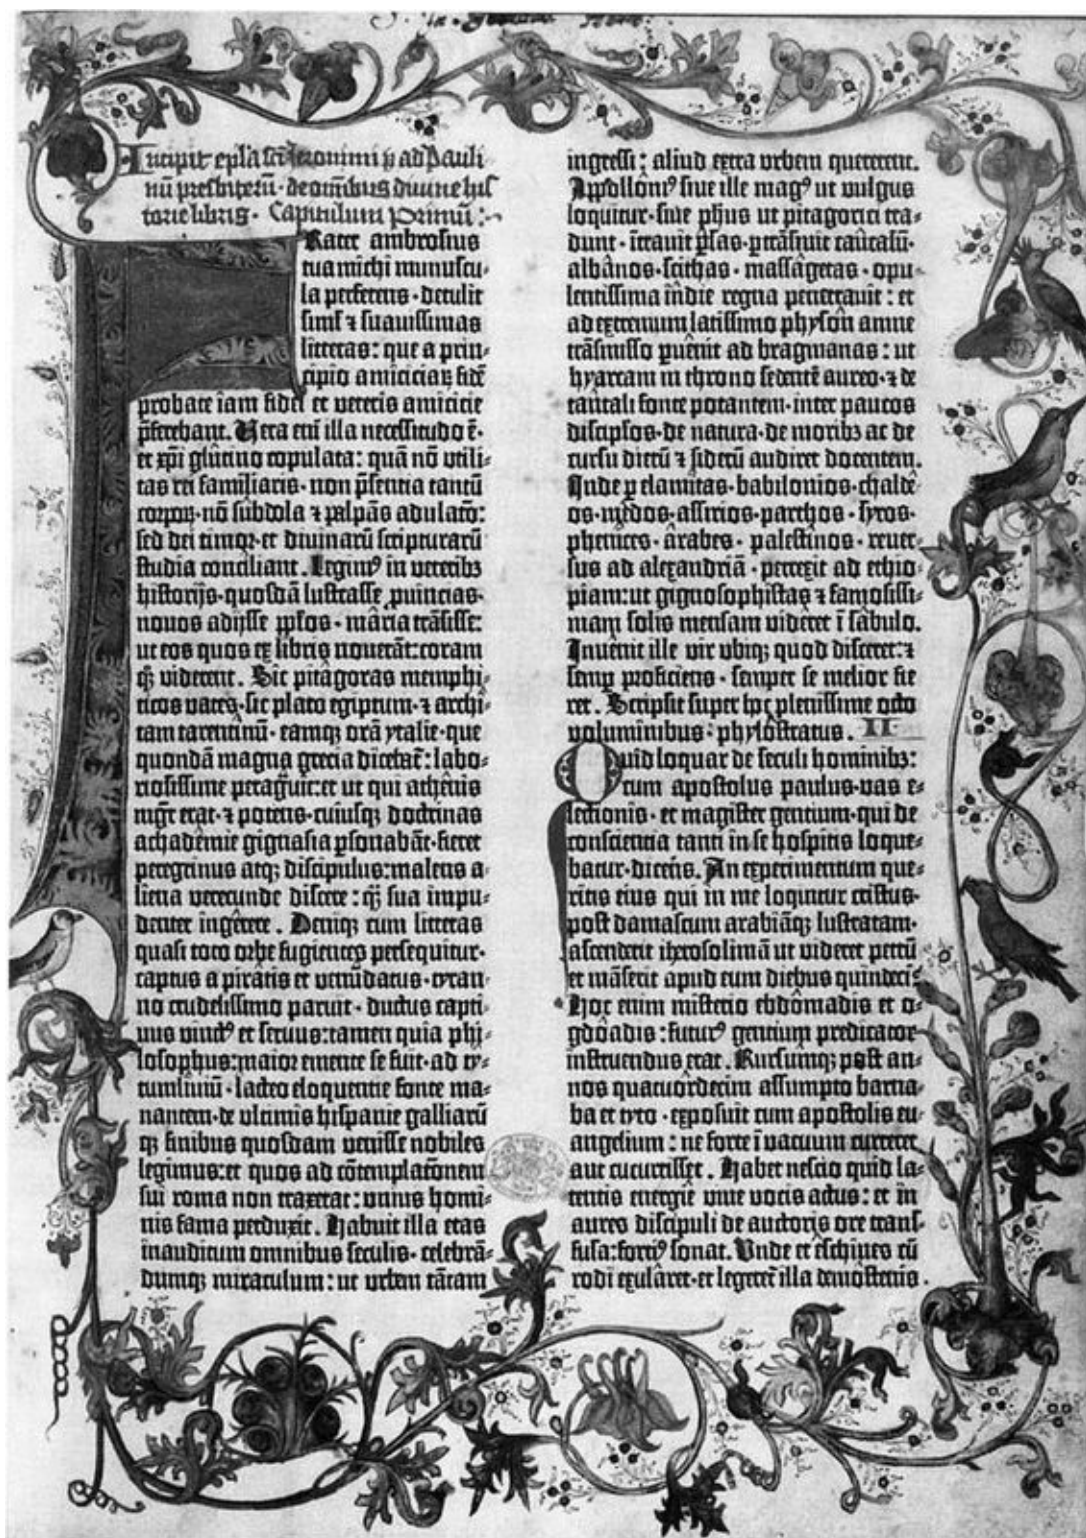 Incipit epla sci Jeronimi ꝓ ad Pauli
nū presbiterū · de omībus diuine his
torie libris · Capitulum Primū :
FRater ambrosius
tua michi munuscu-
la perferens · detulit
siml ⁊ suauissimas
litteras : que a prin-
cipio amiciciaꝝ fidē
probate iam fidei et veteris amicicie
p̄ferebant . Uera em̄ illa necessitudo ē ·
et xp̄i glūtino copulata : quā nō vtili-
tas rei familiaris · non p̄sentia tantū
corpoꝝ · nō subdola ⁊ palpās adulatō :
sed dei timoꝛ et diuinarū scripturarū
studia conciliant . Legimꝰ in veteribꝫ
historijs · quosdā lustrasse ꝓuincias ·
nouos adijsse pp̄los · maria trāsisse :
ut eos quos ex libris nouerāt : coram
qꝫ viderent . Sic pitagoras memphi-
ticos vates · sic plato egiptum · ⁊ archi-
tam tarentinū · eamqꝫ orā ytalie · que
quondā magna grecia dicebat̄ : labo-
riosissime peragᷓuit : et ut qui athenis
mgr̄ erat · ⁊ potens · cuiusqꝫ doctrinas
achademie gignasia ꝑsonabāt · fieret
peregrinus atqꝫ discipulus : malens a-
liena verecunde discere : qꝫ̄ sua impu-
denter ingerere . Deniqꝫ cum litteras
quasi toto orbe fugientes persequitur ·
captus a piratis et venūdatus · tyran-
no crudelissimo paruit · ductus capti-
uus vinctꝰ et seruus : tamen quia phi-
losophus : maior emente se fuit · ad ty-
tumliuiū · lacteo eloquentie fonte ma-
nantem · de vltimis hispanie galliarū
qꝫ finibus quosdam venisse nobiles
legimus : et quos ad cōtemplatōnem
sui roma non traxerat : vnius homi-
nis fama perduxit . Habuit illa etas
inauditum omnibus seculis · celebrā-
dumqꝫ miraculum : ut urbem tātam
ingressi : aliud extra vrbem quererent .
Apolloniꝰ siue ille magꝰ ut vulgus
loquitur · siue phus ut pitagorici tra-
dunt · ītrauit ꝑsas · ꝑtrāsiuit caucasū ·
albanos · scithas · massagetas · opu-
lentissima indie regna penetrauit : et
ad extremum latissimo physon amne
trāsmisso ꝑuenit ad bragmanas : ut
hyarcam in throno sedentē aureo · ⁊ de
tantali fonte potantem · inter paucos
discip̄los · de natura · de moribꝫ ac de
cursu dierū ⁊ siderū audiret docentem .
Inde ꝑ elamitas · babilonios · chalde-
os · medos · assirios · parthos · syros ·
phenices · arabes · palestinos · reuer-
sus ad alexandriā · perrexit ad ethio-
piam : ut gignosophistas ⁊ famosissi-
mam solis mensam videret ī sabulo .
Inuenit ille vir vbiqꝫ quod disceret : ⁊
semꝑ proficiens · semper se melior fie
ret . Scripsit super hoc plenissime octo
voluminibus : phylostratus . II
QUid loquar de seculi hominibꝫ :
cum apostolus paulus · vas e-
lectionis · et magister gentium · qui de
conscientia tanti in se hospitis loque-
batur · dicens . An experimentum que-
ritis eius qui in me loquitur cristus ·
post damascum arabiāqꝫ lustratam ·
ascenderit iherosolimā ut videret petrū
et māserit apud eum diebus quindeci ·
Hoc enim misterio ebdomadis et o-
gdoadis : futurꝰ gentium predicator
instruendus erat . Rursumqꝫ post an-
nos quatuordecim assumpto barna-
ba et tyto · exposuit cum apostolis eu-
angelium : ne forte ī vacuum curreret
aut cucurrisset . Habet nescio quid la-
tentis energie viue vocis actus : et in
aures discipuli de auctoris ore trans-
fusa : fortiꝰ sonat . Unde et eschines cū
rodi exularet · et legeret̄ illa demostenis .